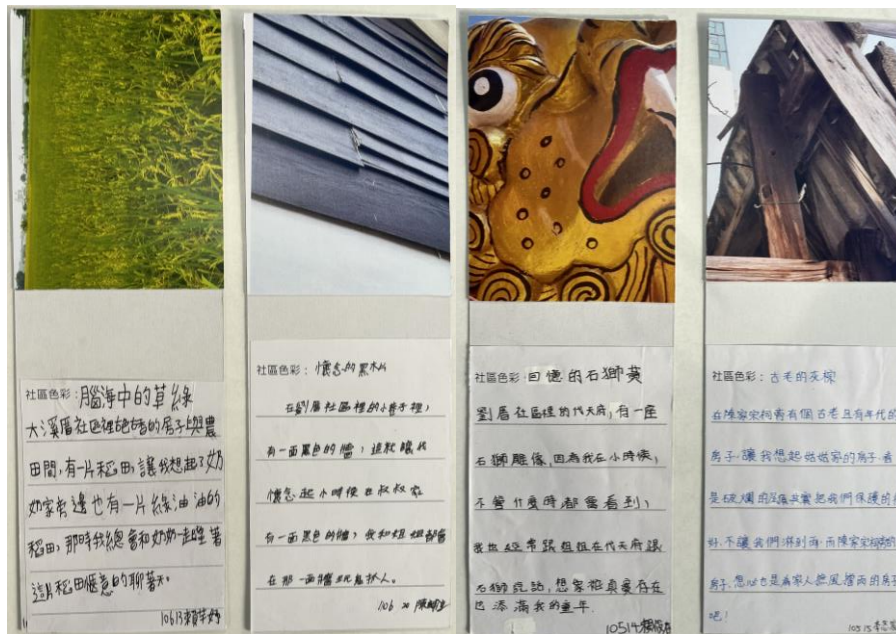 社區色彩：腦海中的草綠
大溪厝社區裡的房子與農
田間，有一片稻田，讓我想起了奶
奶家旁邊也有一片綠油油的
稻田，那時我總會和奶奶一起
這片稻田愜意的聊著天。
10613
社區色彩：懷念的黑
在劉厝社區裡的小巷子裡，
有一面黑色的牆，這就讓我
懷念起小時候在叔叔家
有一面黑色的牆，我和姐姐都會
在那一面牆玩鬼抓人。
106 20
社區色彩：回憶的石獅黃
劉厝社區裡的代天府，有一座
石獅雕像，因為我在小時候，
不管什麼時都會看到，
我也經常跟姐姐在代天府跟
石獅玩話，想家裡真
添滿我的童年.
10514
社區色彩：古老的灰棕
在陳家宗祠旁有個古老且有年代的
房子，讓我想起姑姑家的房子，看
是破爛的 其實把我們保護的
好，不讓我們淋到雨，而陳家宗祠旁的
房子，想必也是為家人遮風擋雨的房子
吧！
10515